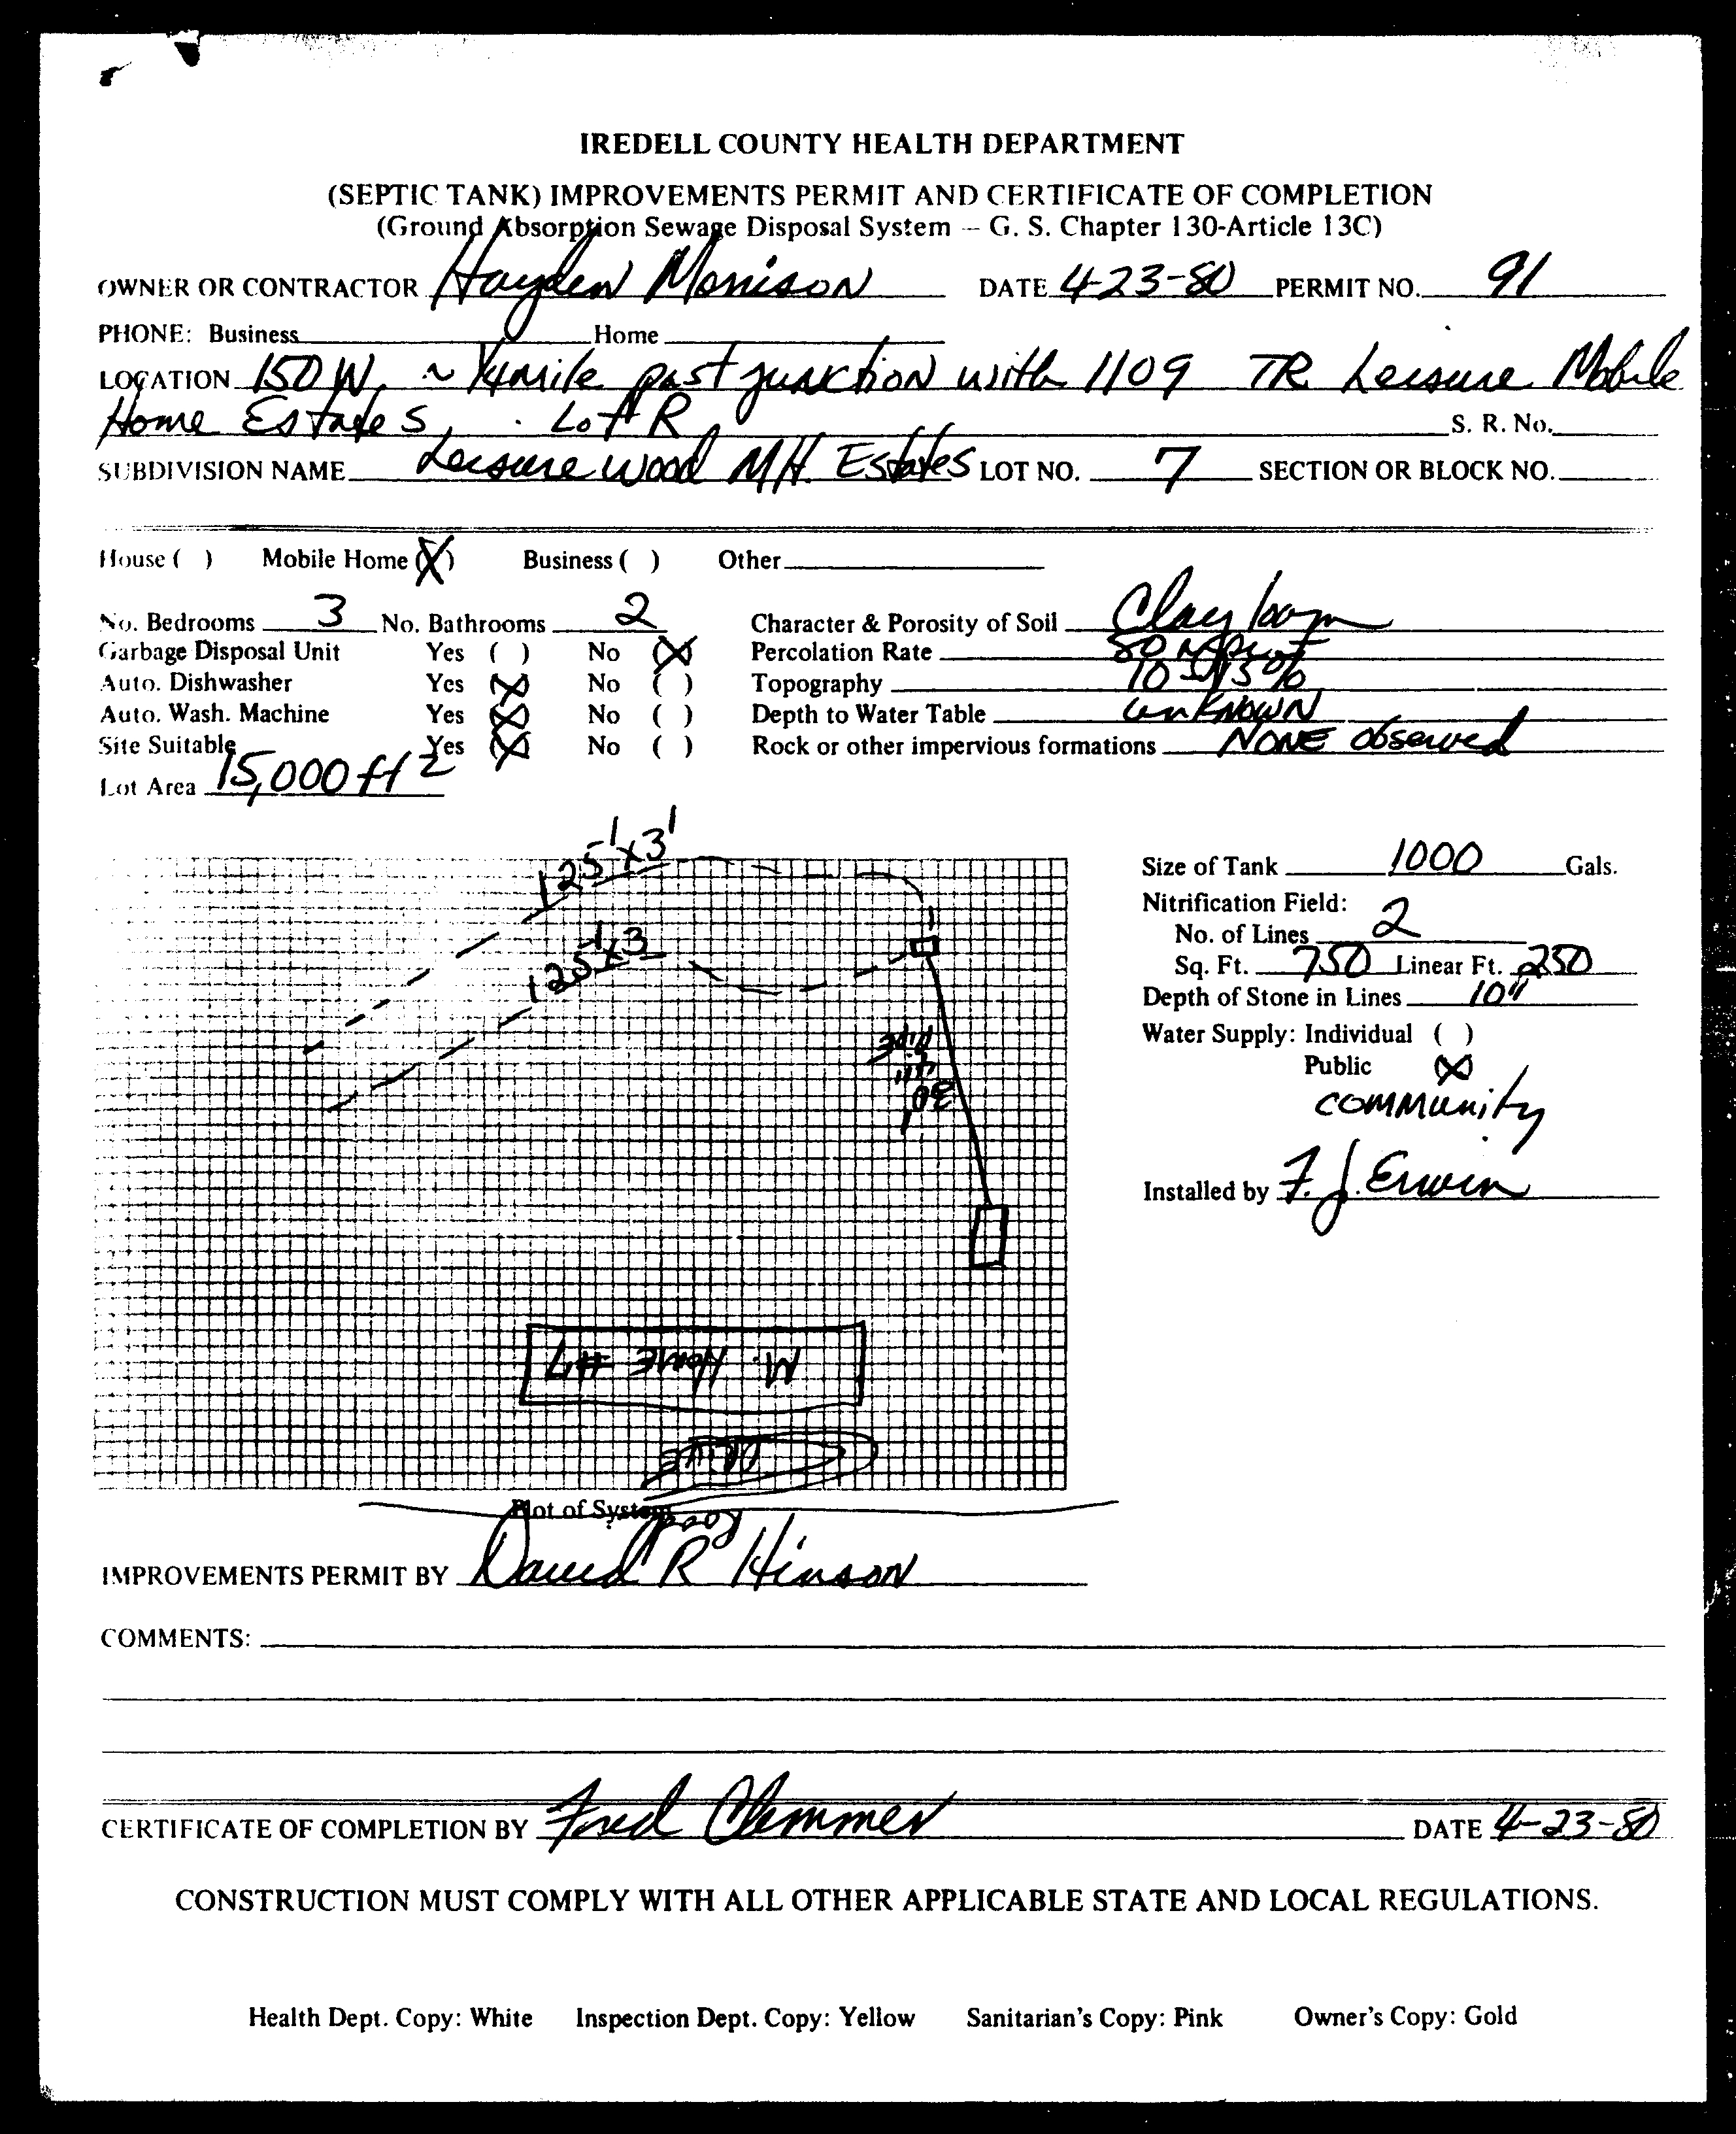 IREDELL COUNTY HEALTH DEPARTMENT
(SEPTIC TANK) IMPROVEMENTS PERMIT AND CERTIFICATE OF COMPLETION
(Ground Absorption Sewage Disposal System -- G. S. Chapter 130-Article 13C)
OWNER OR CONTRACTOR Hayden Morrison DATE 4-23-80 PERMIT NO. 91
PHONE: Business Home
LOCATION 150 W. ~ 1/4 mile past junction with 1109 TR Leisure Mobile
Home Estates, Lot R S. R. No.
SUBDIVISION NAME Leisure Wood M.H. Estates LOT NO. 7 SECTION OR BLOCK NO.
House ( ) Mobile Home (X) Business ( ) Other
No. Bedrooms 3 No. Bathrooms 2 Character & Porosity of Soil Clay loam
Garbage Disposal Unit Yes ( ) No (X) Percolation Rate 80
Auto. Dishwasher Yes (X) No ( ) Topography 10 - 15%
Auto. Wash. Machine Yes (X) No ( ) Depth to Water Table unknown
Site Suitable Yes (X) No ( ) Rock or other impervious formations NONE observed
Lot Area 15,000 ft 2
125' x 3'
125' x 3
Size of Tank 1000 Gals.
Nitrification Field:
No. of Lines 2
Sq. Ft. 750 Linear Ft. 250
Depth of Stone in Lines 10"
Water Supply: Individual ( )
Public (X)
community
Installed by F. J. Erwin
30'
4"
PIPE
M. Home #7
Drive
Plot of System
Road
IMPROVEMENTS PERMIT BY David R Hinson
COMMENTS:
CERTIFICATE OF COMPLETION BY Fred Clemmer DATE 4-23-80
CONSTRUCTION MUST COMPLY WITH ALL OTHER APPLICABLE STATE AND LOCAL REGULATIONS.
Health Dept. Copy: White Inspection Dept. Copy: Yellow Sanitarian's Copy: Pink Owner's Copy: Gold